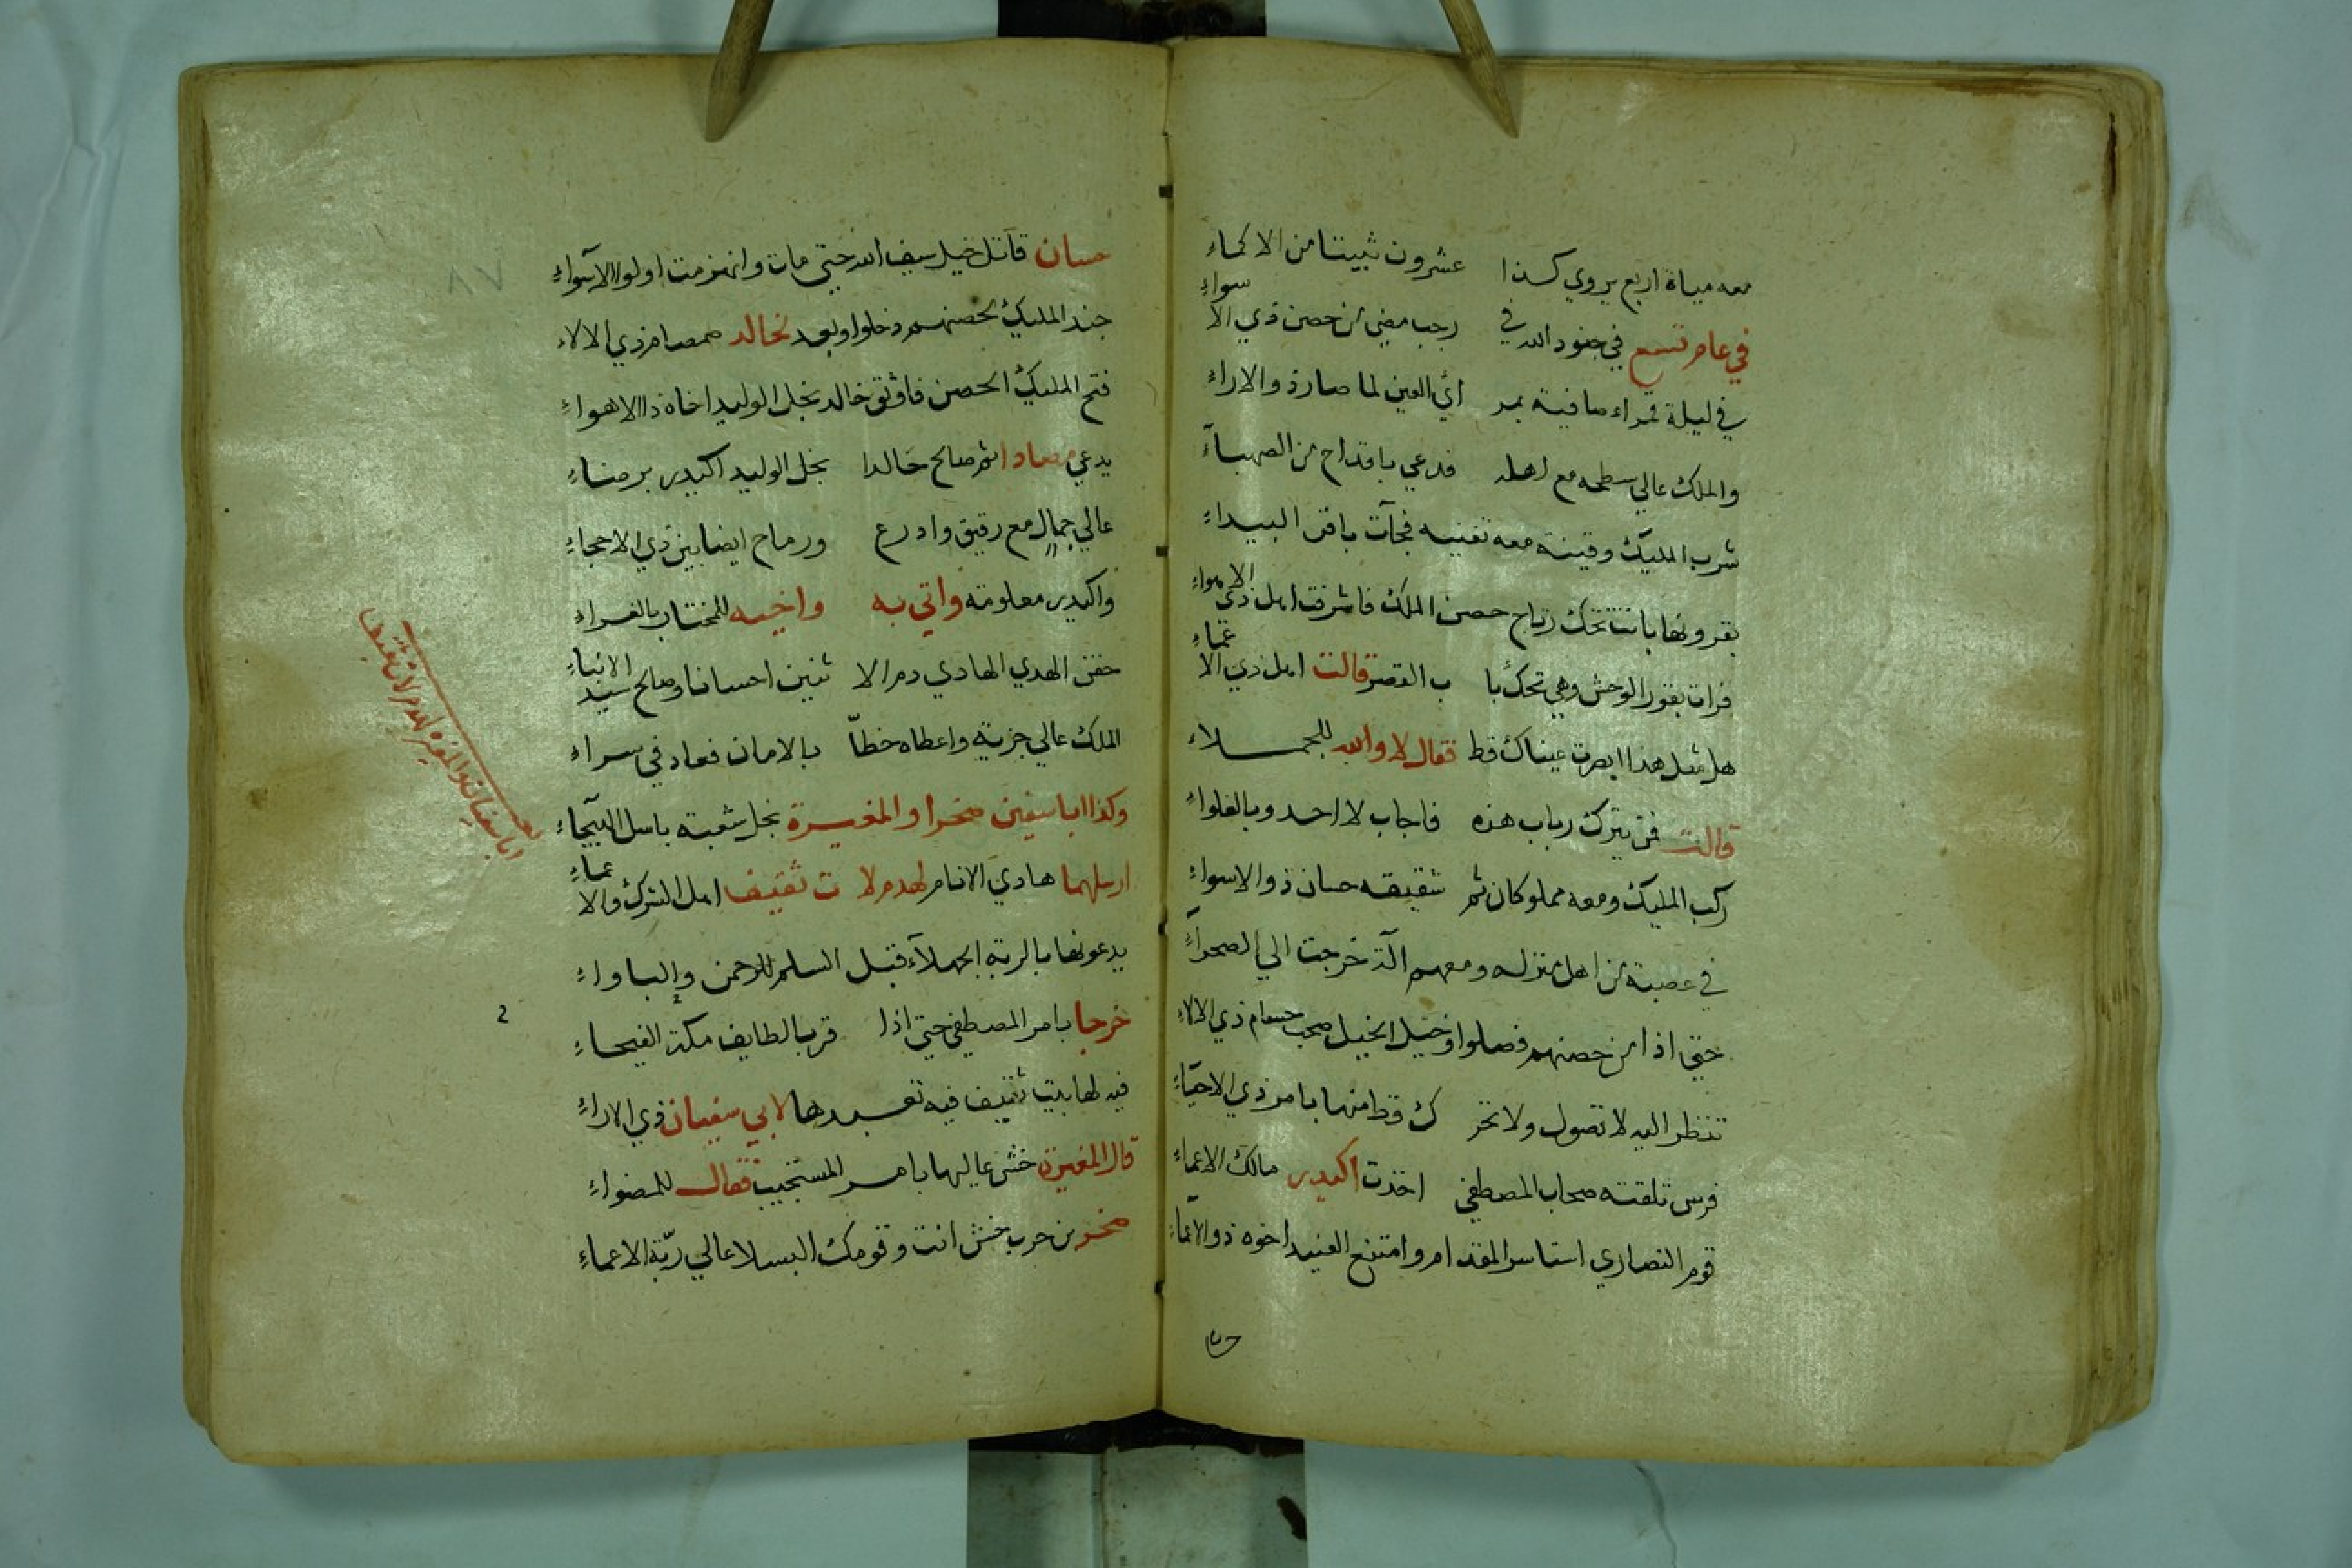 معه مياة اربع يروي كذا عشرون ثبيتا من الاكماء
في عام تسع في جنود الله في رجب مضي من حصن ذي الاسواء
في ليلة قمراء صافية بمر اي العين لما صار ذو الاراء
والملك عالي سطحه مع اهله فدعي باقداح من الصهباء
شرب المليك وقينة معه تغنيه فجآت باقر البيداء
بقرونها باتت تحك رتاج حصن الملك فاشرفت اهل ذي الامواء
فرات بقور الوحش وهي تحك با ب القصر قالت اهل ذي الاغماء
هل مثل هذا ابصرت عيناك قط فقال لا والله للجملاء
قالت فمن يترك رباب هذه فاجاب لا احد وبالغلواء
ركب المليك ومعه مملوكان ثم شقيقه حسان ذو الاسواء
في عصبة من اهل منزله ومعهم آلة خرجت الي الصحراء
حتي اذا من حصنهم فصلوا وخيل الخيل صحب حسام ذي الالاء
تنظر اليه لا تصول ولا تحر ك قط منها بامر ذي الاحياء
فرس تلقته صحاب المصطفي اخذت اكيدر مالك الاعماء
قوم النصاري استاسر المقدام وامتنع العنيد اخوه ذو الاغماء
حسان قاتل خيل سيف الله حتي مات وانهزمت اولوا الاسواء
جند المليك لحصنهم دخلوا وبعد لخالد صمصام ذي الالاء
فتح المليك الحصن فاوثق خالد نجل الوليد اخاه ذا الاهواء
يدعي مصادا ثم صالح خالدا نجل الوليد اكيدر برضاء
عالي جمال مع رقيق وادرع ورماح ايضا بين ذي الاحجاء
واكيدر معلومة واتي به واخيه للمختار بالغراء
حقن الهدي الهادي دم الا ثنين احسانا وصالح سيد الانباء
الملك عالي جزية واعطاه خطّا بالامان فعاد في سراء
وكذا اباسفين صخرا والمغيرة نجل شعبة باسل الهيجاء
ارسلهما هادي الانام لهدم لا ت ثقيف اهل الشرك والاغماء
يدعونها بالربة الجهلاء قبل السلم للرحمن والباواء
خرجا بامر المصطفي حتي اذا قربا لطايف مكة الفيحاء
فيه لها بيت ثقيف فيه تعبدها لابي سفيان ذي الاراء
قال المغيرة خش عاليها بامر المستجيب فقال للمضواء
صخر بن حرب خش انت وقومك البسلا عالي ربّة الاعماء